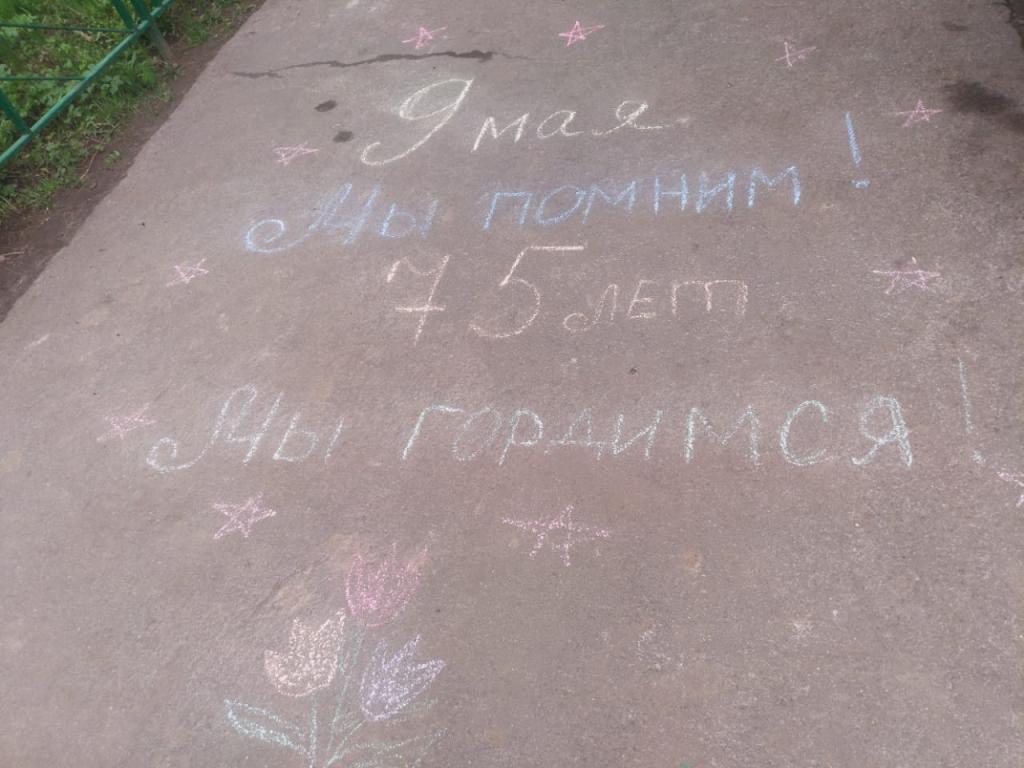 9 мая
Мы помним!
75 лет
Мы гордимся!